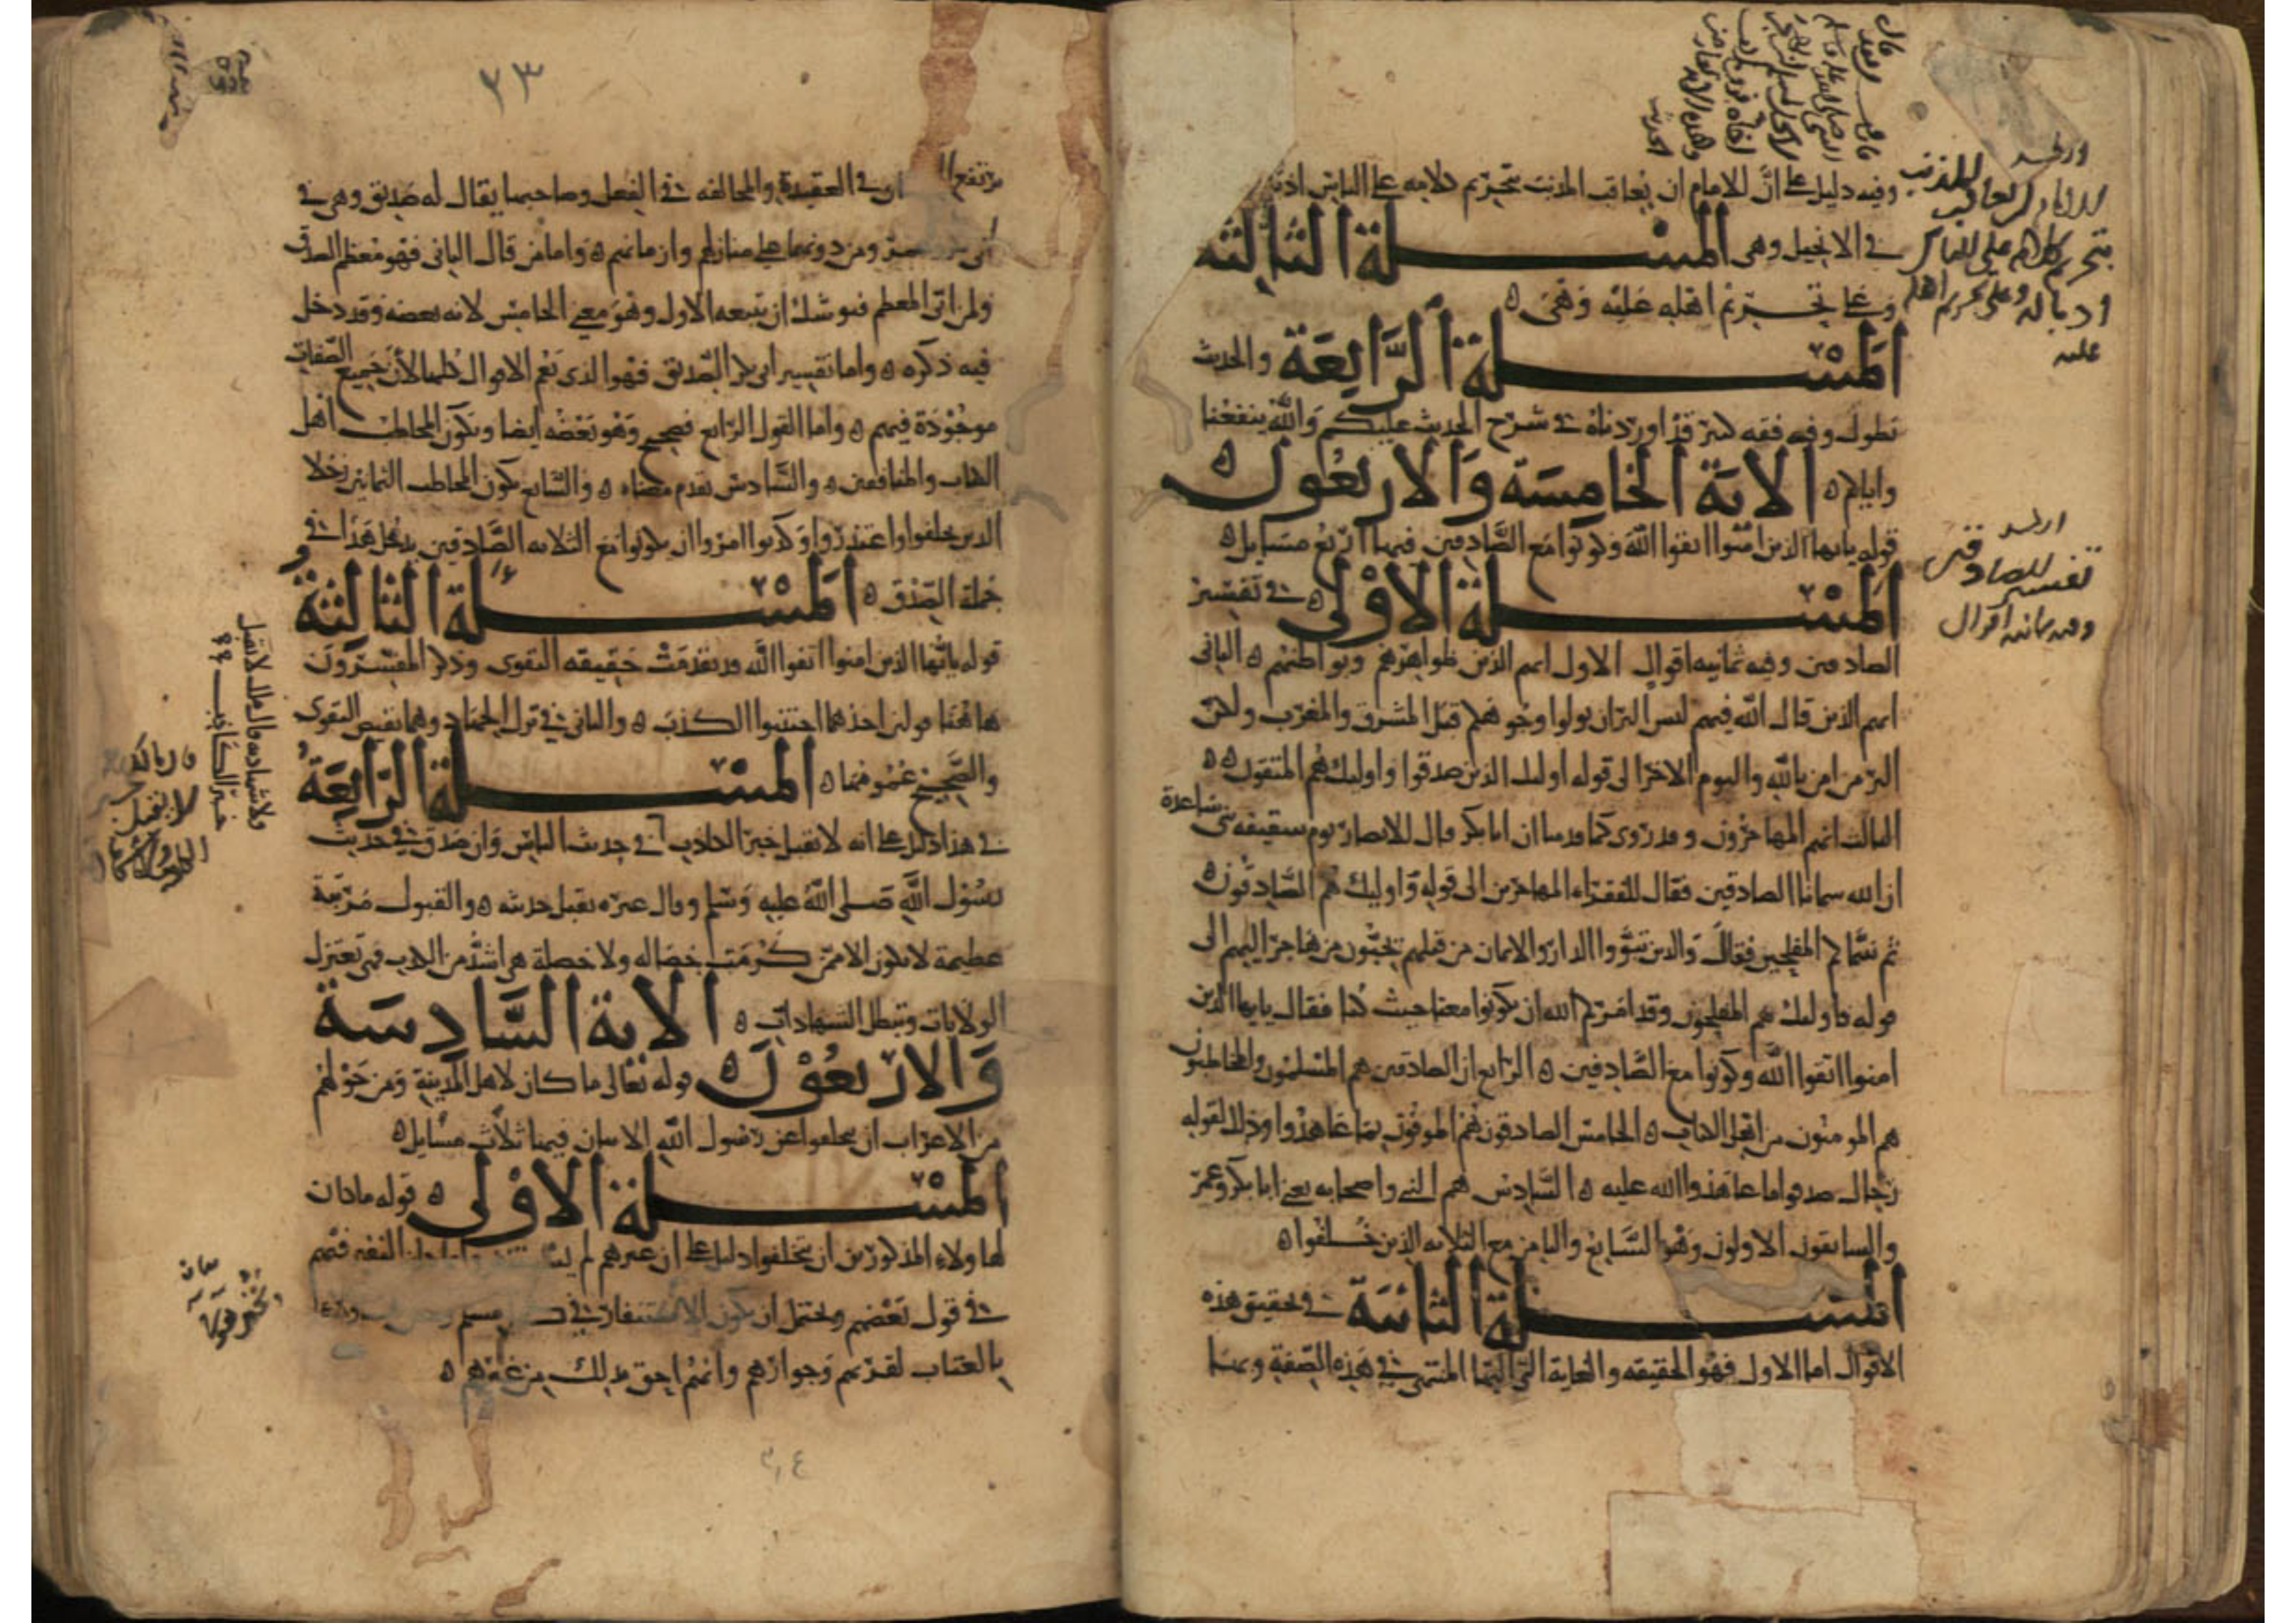 وفيه دليل على أن للامام ان يعاقب المذنب بتحريم كلامه على الناس ادبا
في الانجيل وهي المسلة الثالثة
وعلى تحريم اهله عليه وهي
المسلة الرابعة والحديث
يطول وفيه فقه كثير قد اوردناه في شرح الحديث عليكم والله ينفعنا
واياكم الاية الخامسة والاربعون
قوله يايها الذين امنوا اتقوا الله وكونوا مع الصادقين فيها اربع مسايل
المسلة الاولى في تفسير
الصادقين وفيه ثمانية اقوال الاول انهم الذين ظواهرهم وبواطنهم الثاني
انهم الذين قال الله فيهم ليس البر ان تولوا وجوهكم قبل المشرق والمغرب ولكن
البر من امن بالله واليوم الاخر الى قوله اوليك الذين صدقوا واوليك هم المتقون
الثالث انهم المهاجرون وقد روى كما قدمنا ان ابا بكر قال للانصار يوم سقيفة بني ساعدة
ان الله سمانا الصادقين فقال للفقراء المهاجرين الى قوله واوليك هم الصادقون
ثم سماكم المفلحين فقال والذين تبوؤا الدار والايمان من قبلهم يحبون من هاجر اليهم الى
قوله فاوليك هم المفلحون وقد امركم الله ان تكونوا معنا حيث كنا فقال يايها الذين
امنوا اتقوا الله وكونوا مع الصادقين الرابع ان الصادقين هم المسلمون والمخاطبون
هم المومنون من اهل الكتاب الخامس الصادقون هم الموفون بما عاهدوا وذلك لقوله
رجال صدقوا ما عاهدوا الله عليه السادس هم النبي واصحابه يعني ابا بكر وعمر
والسابقون الاولون وهو السابع والثامن مع الثلاثة الذين خلفوا
المسلة الثانية في تحقيق هذه
الاقوال اما الاول فهو الحقيقة والغاية التي اليها المنتهى في هذه الصفة وبها
اربعة
تفسير الصادقين
وفيه ثمانية اقوال
٢٣
يرتفع في العقيدة والمخالفة في الفعل وصاحبها يقال له صديق وهي في
ومن دونهما على منازلهم وازمانهم واما من قال الثاني فهو معظم الصدق
ومن اتى المعظم فيوشك ان يتبعه الاول وهو معنى الخامس لانه بعضه وقد دخل
فيه ذكره واما تفسير ابي بكر الصديق فهو الذي يعم الاقوال كلها لان جميع الصفات
موجودة فيهم واما القول الرابع فصحيح وهو بعضه ايضا ويكون المخاطب اهل
الكتاب والمنافقين والسادس تقدم معناه والسابع يكون المخاطب الثمانين رجلا
الذين تخلفوا واعتذروا وكذبوا امروا ان يكونوا مع الثلاثة الصادقين يدخل هذا في
جملة الصدق المسلة الثالثة
قوله يايها الذين امنوا اتقوا الله قد تقدمت حقيقة التقوى وذكر المفسرون
هاهنا قولين احدهما اجتنبوا الكذب والثاني في ترك الجهاد وهما بعض التقوى
والصحيح عمومها المسلة الرابعة
في هذا دليل على انه لا يقبل خبر الكاذب في حديث الناس وان صدق في حديث
رسول الله صلى الله عليه وسلم وقال غيره يقبل حديثه والقبول مرتبة
عظيمة لا تكون الا لمن كرمت خصاله ولا خصلة هي اشد من الكذب فهي تعزل
الولايات وتبطل الشهادات الاية السادسة
والاربعون قوله تعالى ما كان لاهل المدينة ومن حولهم
من الاعراب ان يتخلفوا عن رسول الله الايتان فيها ثلاث مسايل
المسلة الاولى قوله ما كان
لهاولاء المذكورين ان يتخلفوا دليل على ان غيرهم لم النفر فيهم
في قول بعضهم ويحتمل ان يكون الاستنفار في مسلم
بالعتاب لقربهم وجوارهم وانهم احق بذلك من غيرهم